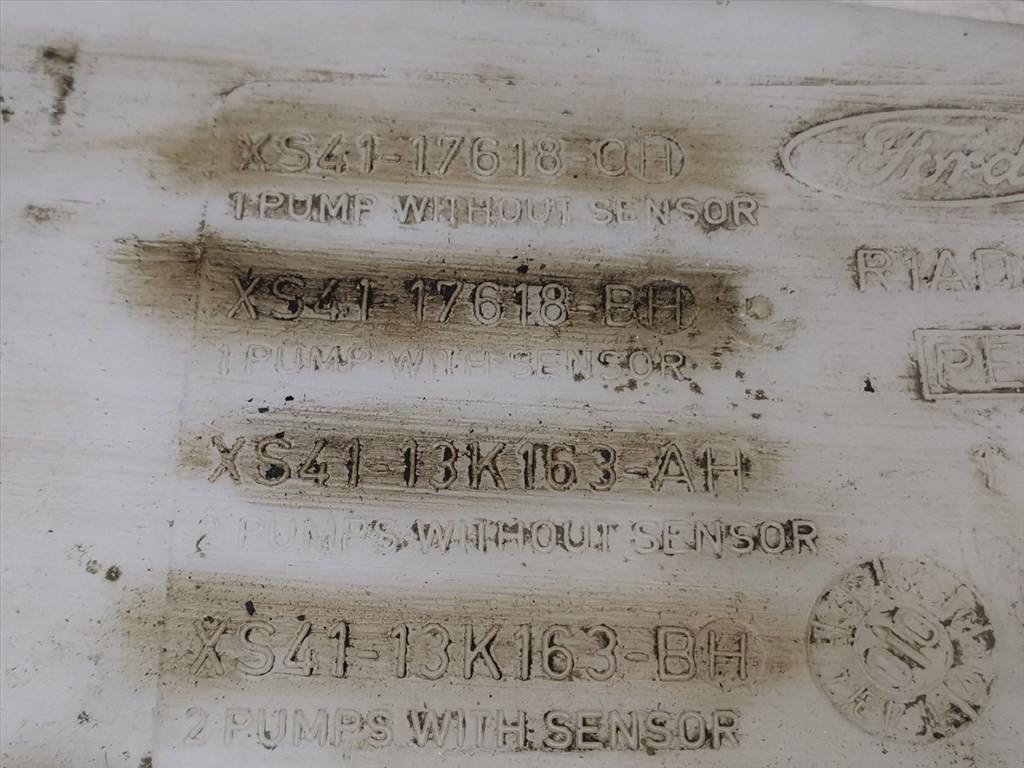 XS41-17618-CH
1 PUMP WITHOUT SENSOR
XS41-17618-BH
1 PUMP WITH SENSOR
XS41-13K163-AH
2 PUMPS WITHOUT SENSOR
XS41-13K163-BH
2 PUMPS WITH SENSOR
Ford
R1AD
PE
1